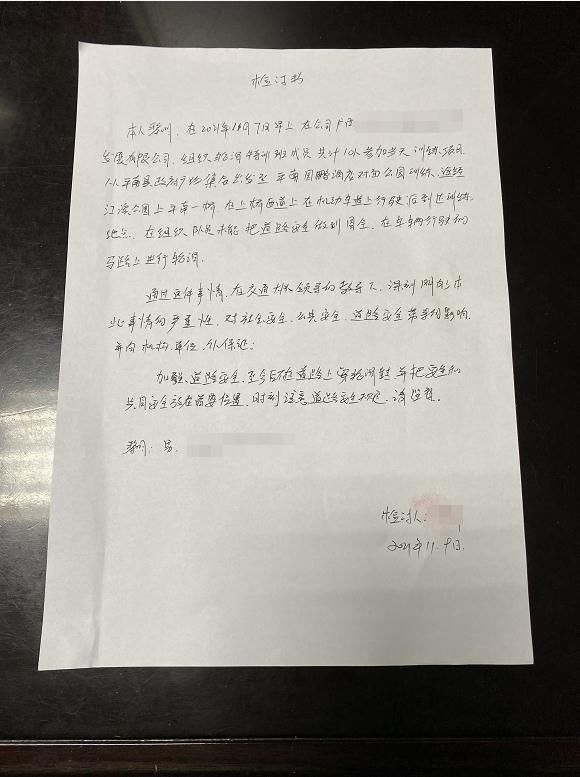 检讨书
本人 在2021年11月7日早上 在公司
发展有限公司,组织轮滑特训班成员 共计10人参加当天训练项目
从平南县政府广场集合出发至 平南国鹏酒店对面公园训练,途经
江滨公园上平南一桥,在上桥匝道上在机动车道上行驶后到达训练
地点,在组织队员 未能把道路安全做到周全,在车辆行驶的
马路上进行轮滑。
通过这件事情,在交通大队领导的教导下,深刻 此事情的严重性,对社会安全、公共安全、道路安全带来的影响
并向机构、单位、 保证:
加强道路安全,至今后不在道路上穿轮滑鞋,并把安全和
共同安全放在首要位置,时刻注意道路安全规范,请监督。
男
检讨人:
2021年11.9日